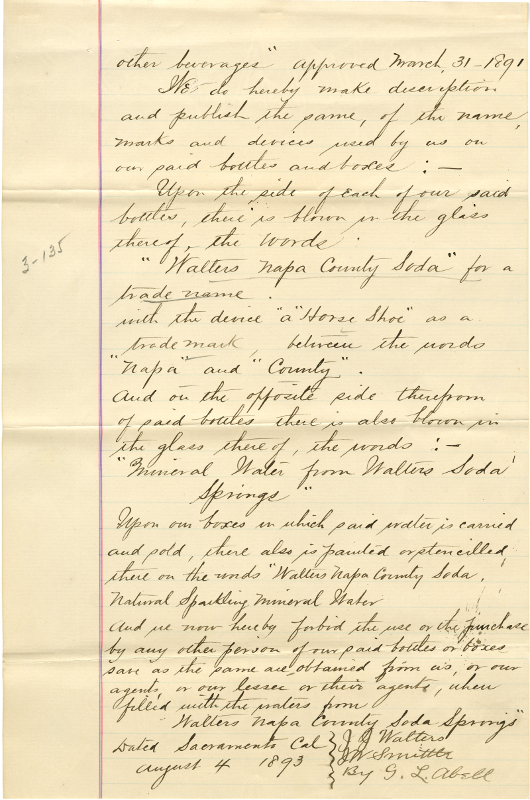 other beverages" approved March, 31 - 1891
We do hereby make description
and publish the same, of the name,
marks and devices used by us on
our said bottles and boxes : —
Upon the side of each of our said
bottles, there is blown in the glass
thereof, the words
"Walters Napa County Soda" for a
trade name.
with the device "a "Horse Shoe" as a
trade mark, between the words
"Napa" and "County".
And on the opposite side therefrom
of said bottles there is also blown in
the glass thereof, the words : —
"Mineral Water from Walters Soda
Springs"
Upon our boxes in which said water is carried
and sold, there also is painted or stencilled,
there on the words "Walters Napa County Soda.
Natural Sparkling Mineral Water
And we now hereby forbid the use or the purchase
by any other person of our said bottles or boxes
save as the same are obtained from us, or our
agents, or our lessee or their agents, when
filled with the waters from
Walters Napa County Soda Springs"
Dated Sacramento Cal
August 4 1893
J J Walters
J W Smittle
By G. L. Abell
3-135